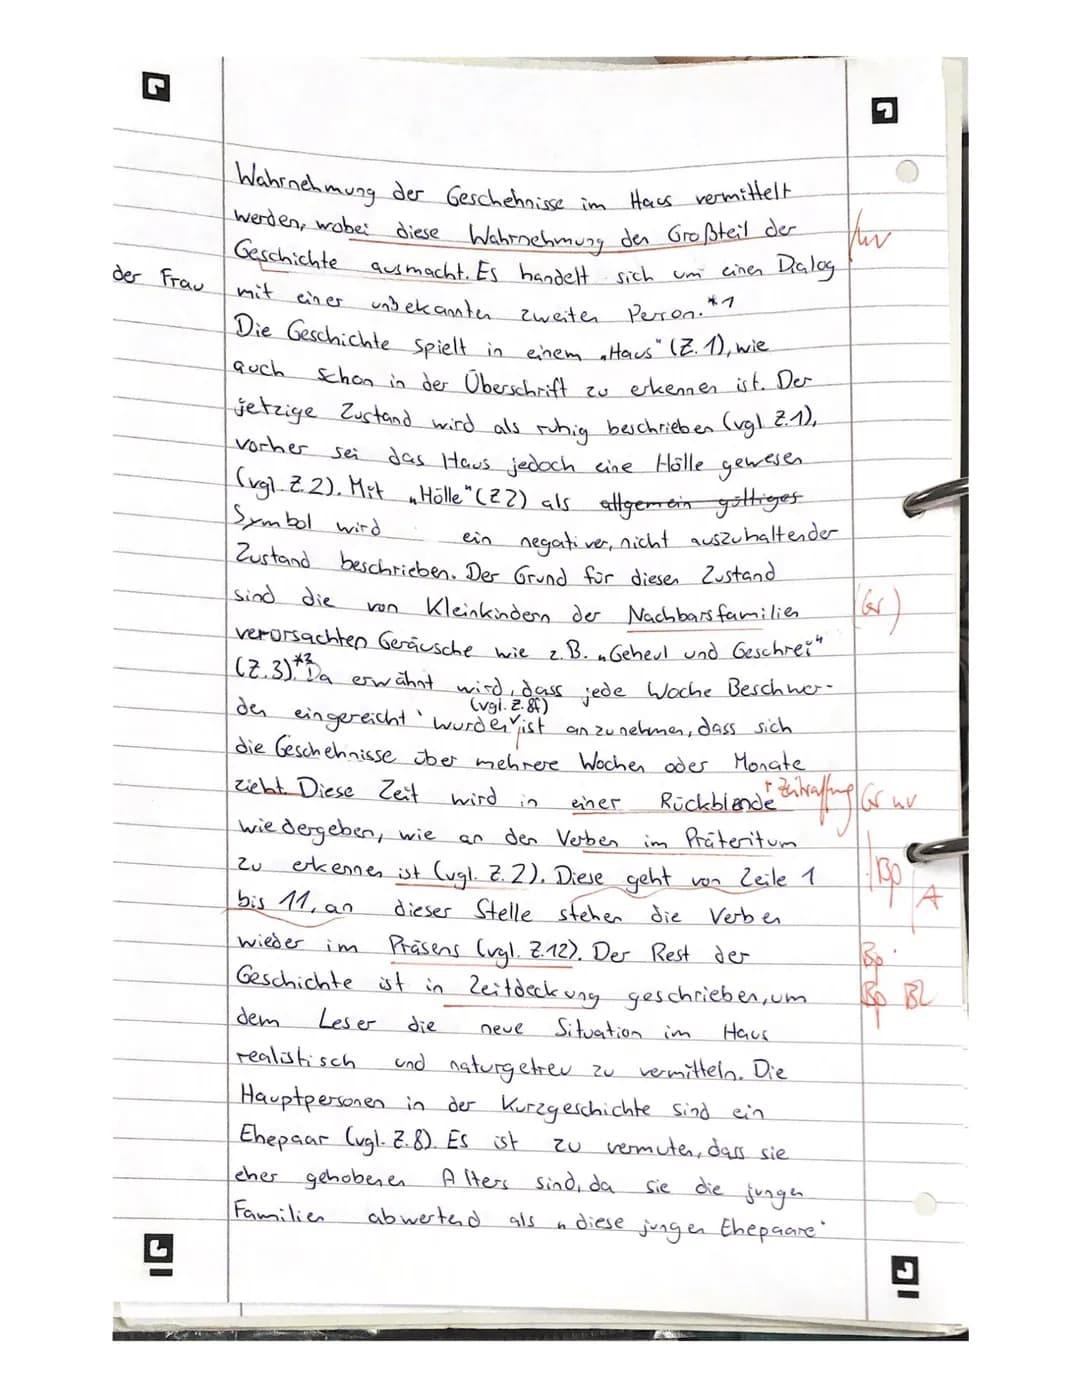 Wahrnehmung der Geschehnisse im Haus vermittelt
werden, wobei diese Wahrnehmung den Großteil der
Geschichte ausmacht. Es handelt sich um einen Dialog
der Frau mit einer unbekannten zweiten Person.*1
Die Geschichte spielt in einem „Haus" (Z. 1), wie
auch schon in der Überschrift zu erkennen ist. Der
jetzige Zustand wird als ruhig beschrieben (vgl Z.1),
vorher sei das Haus jedoch eine Hölle gewesen
(vgl. Z. 2). Mit „Hölle" (Z2) als allgemein gültiges
Symbol wird ein negativer, nicht auszuhaltender
Zustand beschrieben. Der Grund für diesen Zustand
sind die von Kleinkindern der Nachbarsfamilien (Gr)
verursachten Geräusche wie z.B. „Geheul und Geschrei"
(Z.3).*2 Da erwähnt wird, dass jede Woche Beschwer-
(vgl. Z. 8f)
den eingereicht wurden, ist anzunehmen, dass sich
die Geschehnisse über mehrere Wochen oder Monate
zieht. Diese Zeit wird in einer Rückblende + Zeitraffung Gr
wiedergeben, wie an den Verben im Präteritum
zu erkennen ist (vgl. Z. 2). Diese geht von Zeile 1 Bp A
bis 11, an dieser Stelle stehen die Verben
wieder im Präsens (vgl. Z.12). Der Rest der Bp
Geschichte ist in Zeitdeckung geschrieben, um Bp BZ
dem Leser die neue Situation im Haus
realistisch und naturgetreu zu vermitteln. Die
Hauptpersonen in der Kurzgeschichte sind ein
Ehepaar (vgl. Z. 8). Es ist zu vermuten, dass sie
eher gehobenen Alters sind, da sie die jungen
Familien abwertend als „diese jungen Ehepaare"